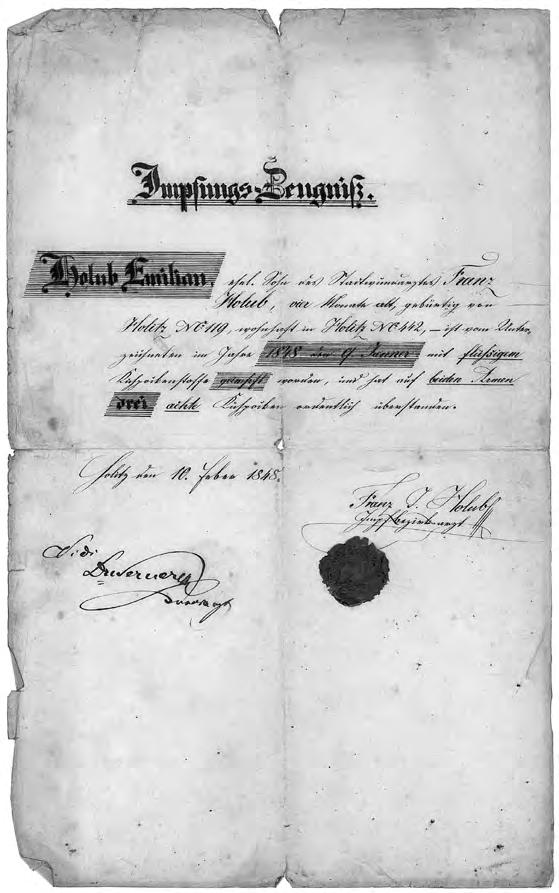 Impfungs-Zeugniß.
Holub Emilian, ehel. Sohn des Stadtwundarztes Franz
Holub, vier Monate alt, gebürtig von
Holitz NC 119, wohnhaft in Holitz NC 442, – ist vom Unter-
zeichneten im Jahre 1848 den 9 Janner mit flüßigem
Kuhpokenstoffe geimpft worden, und hat auf beiden Armen
drei achte Kuhpoken ordentlich überstanden.
Holitz den 10. Feber 1848.
Franz J. Holub
Impfbezirksarzt
Vidi